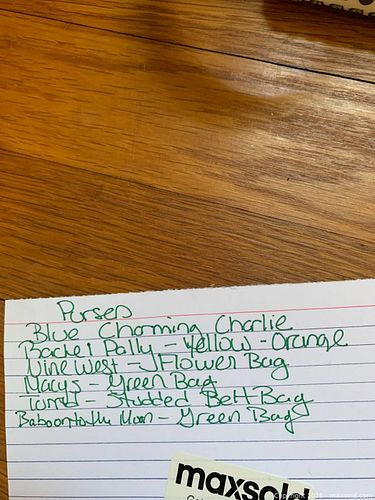 Purses
Blue Charming Charlie
Rachel Pally - Yellow - Orange
Nine West - Flower Bag
Macys - Green Bag
Torrid - Studded Belt Bag
Baboontothe Moon - Green Bag
maxsold